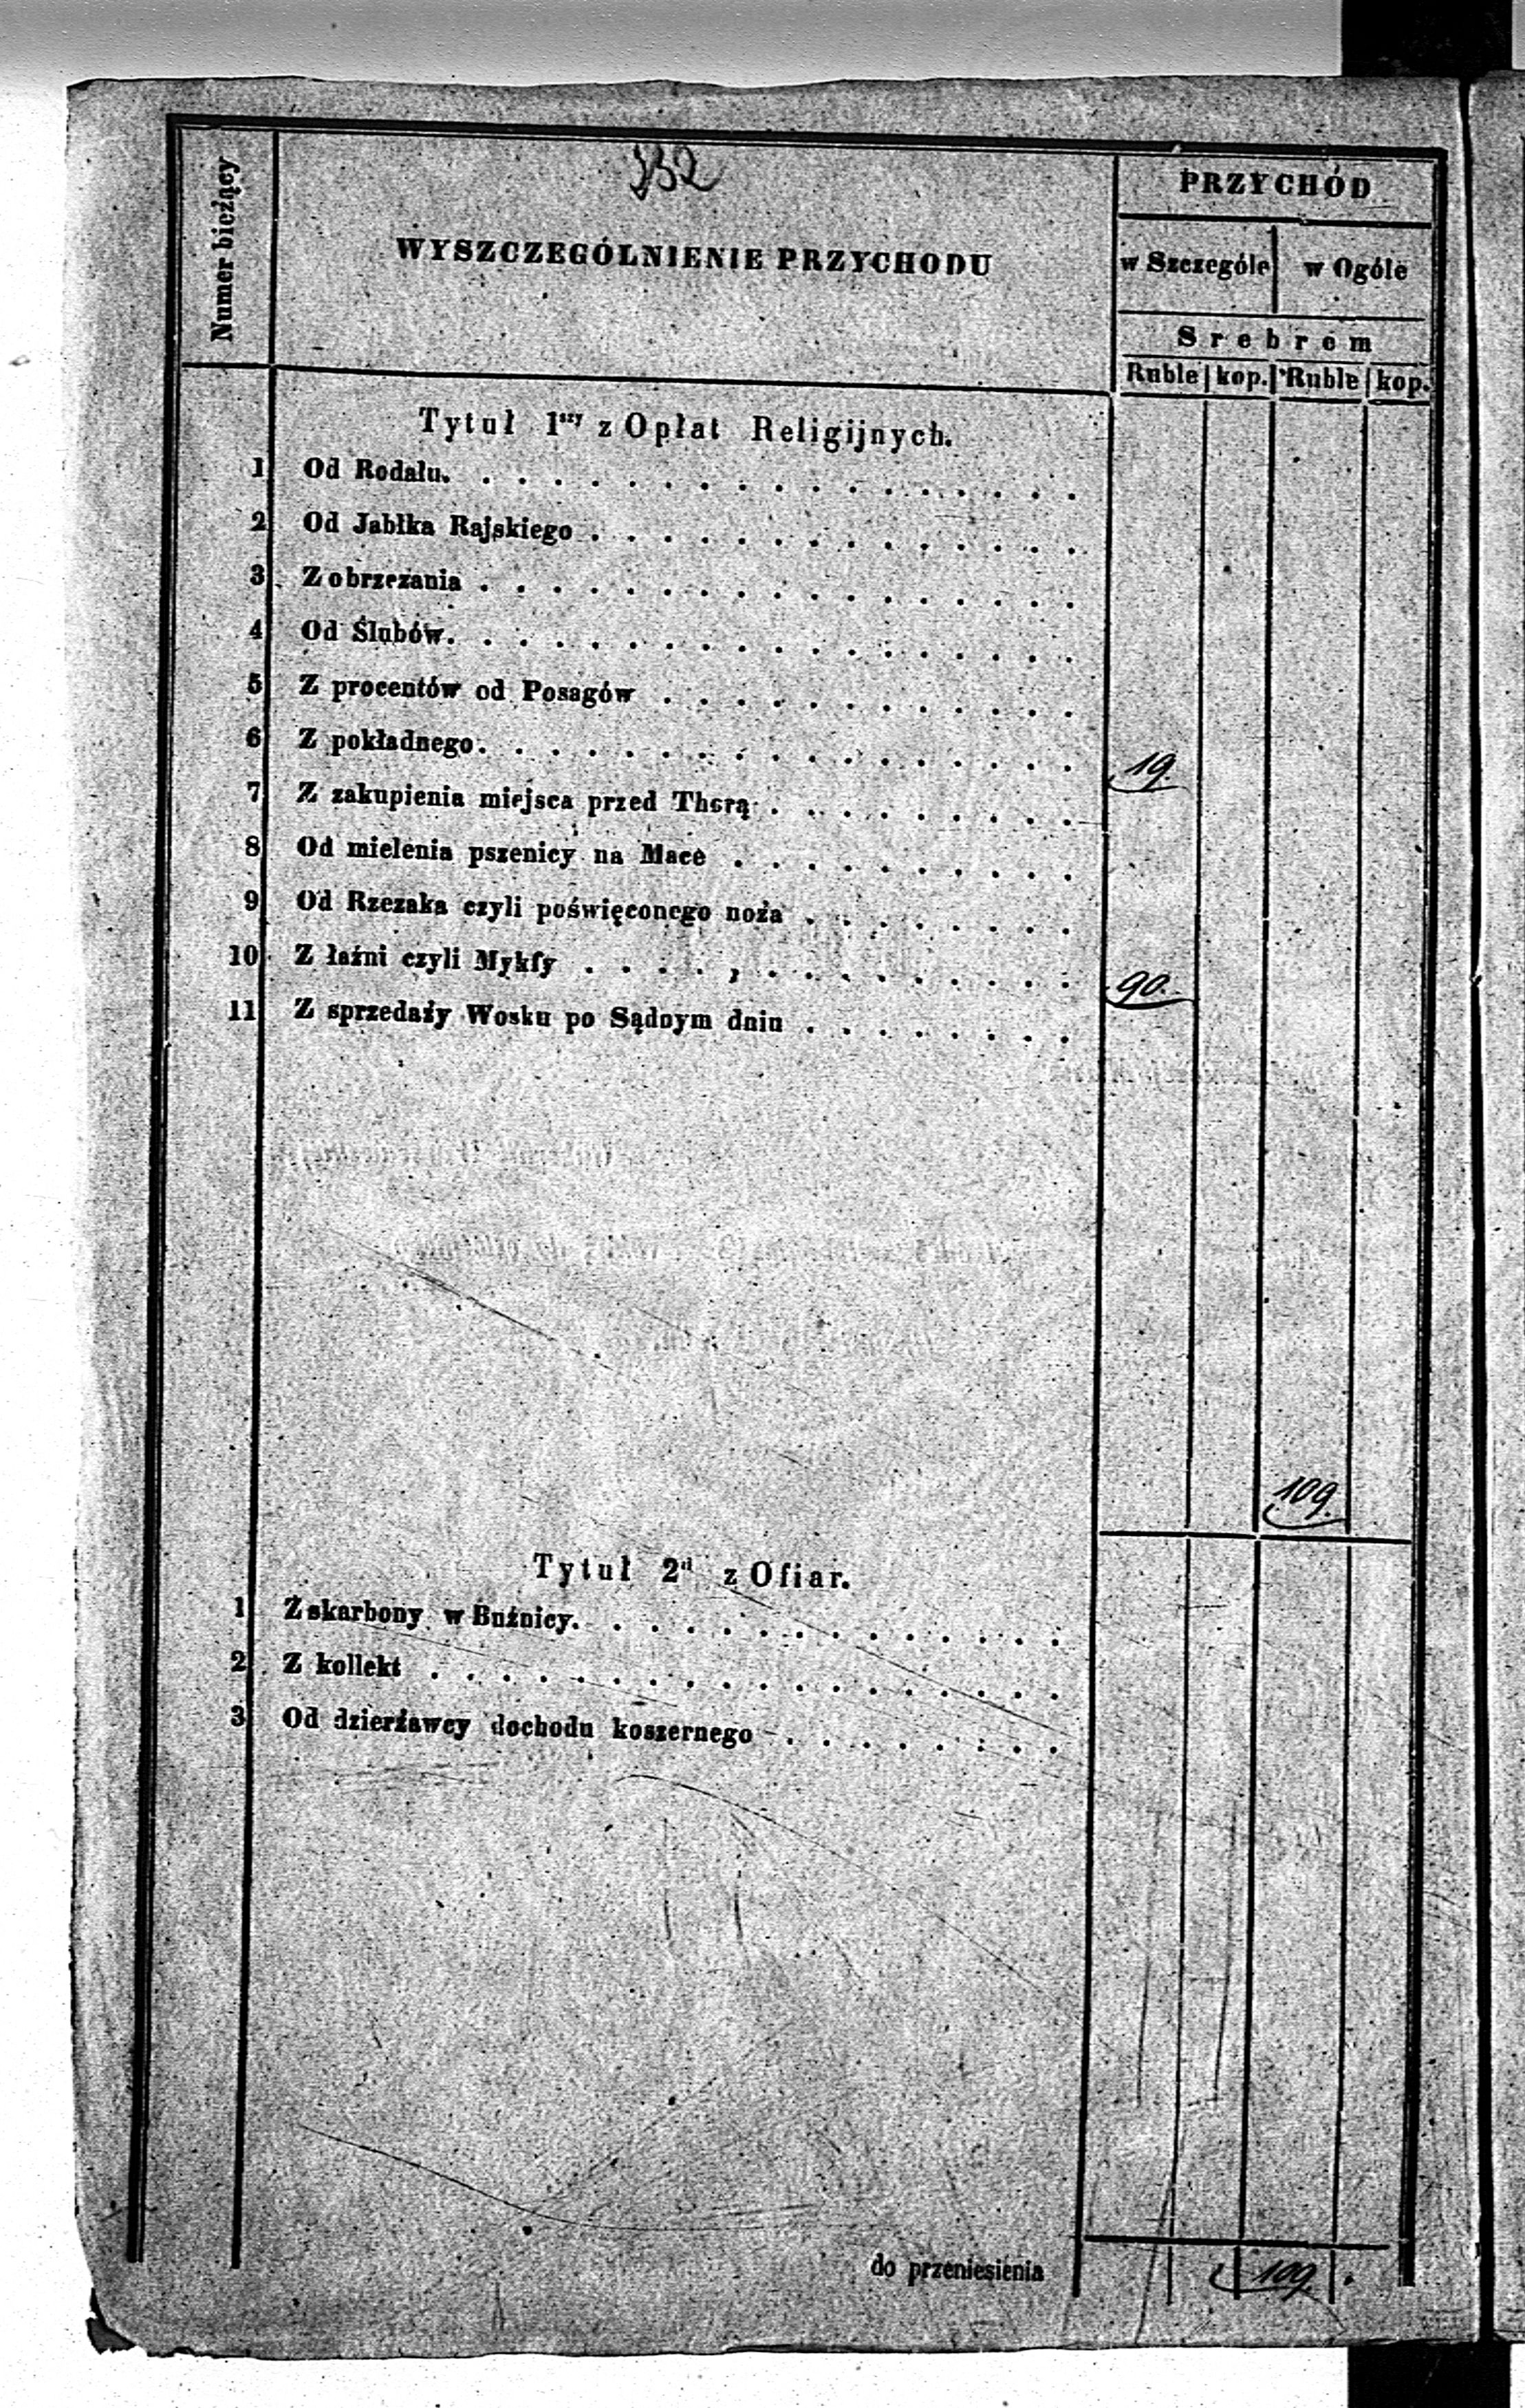 332
Numer bieżący
WYSZCZEGÓLNIENIE PRZYCHODU
PRZYCHÓD
w Szczególe w Ogóle
Srebrem
Ruble kop. Ruble kop.
Tytuł 1szy z Opłat Religijnych.
1 Od Rodału.
2 Od Jabłka Rajskiego
3 Z obrzezania
4 Od Ślubów.
5 Z procentów od Posagów
6 Z pokładnego. 19.
7 Z zakupienia miejsca przed Thorą
8 Od mielenia pszenicy na Mace
9 Od Rzezaka czyli poświęconego noża
10 Z łaźni czyli Mykfy 90.
11 Z sprzedaży Wosku po Sądnym dniu
109.
Tytuł 2d z Ofiar.
1 Z skarbony w Buźnicy.
2 Z kollekt
3 Od dzierżawcy dochodu koszernego
do przeniesienia 109.